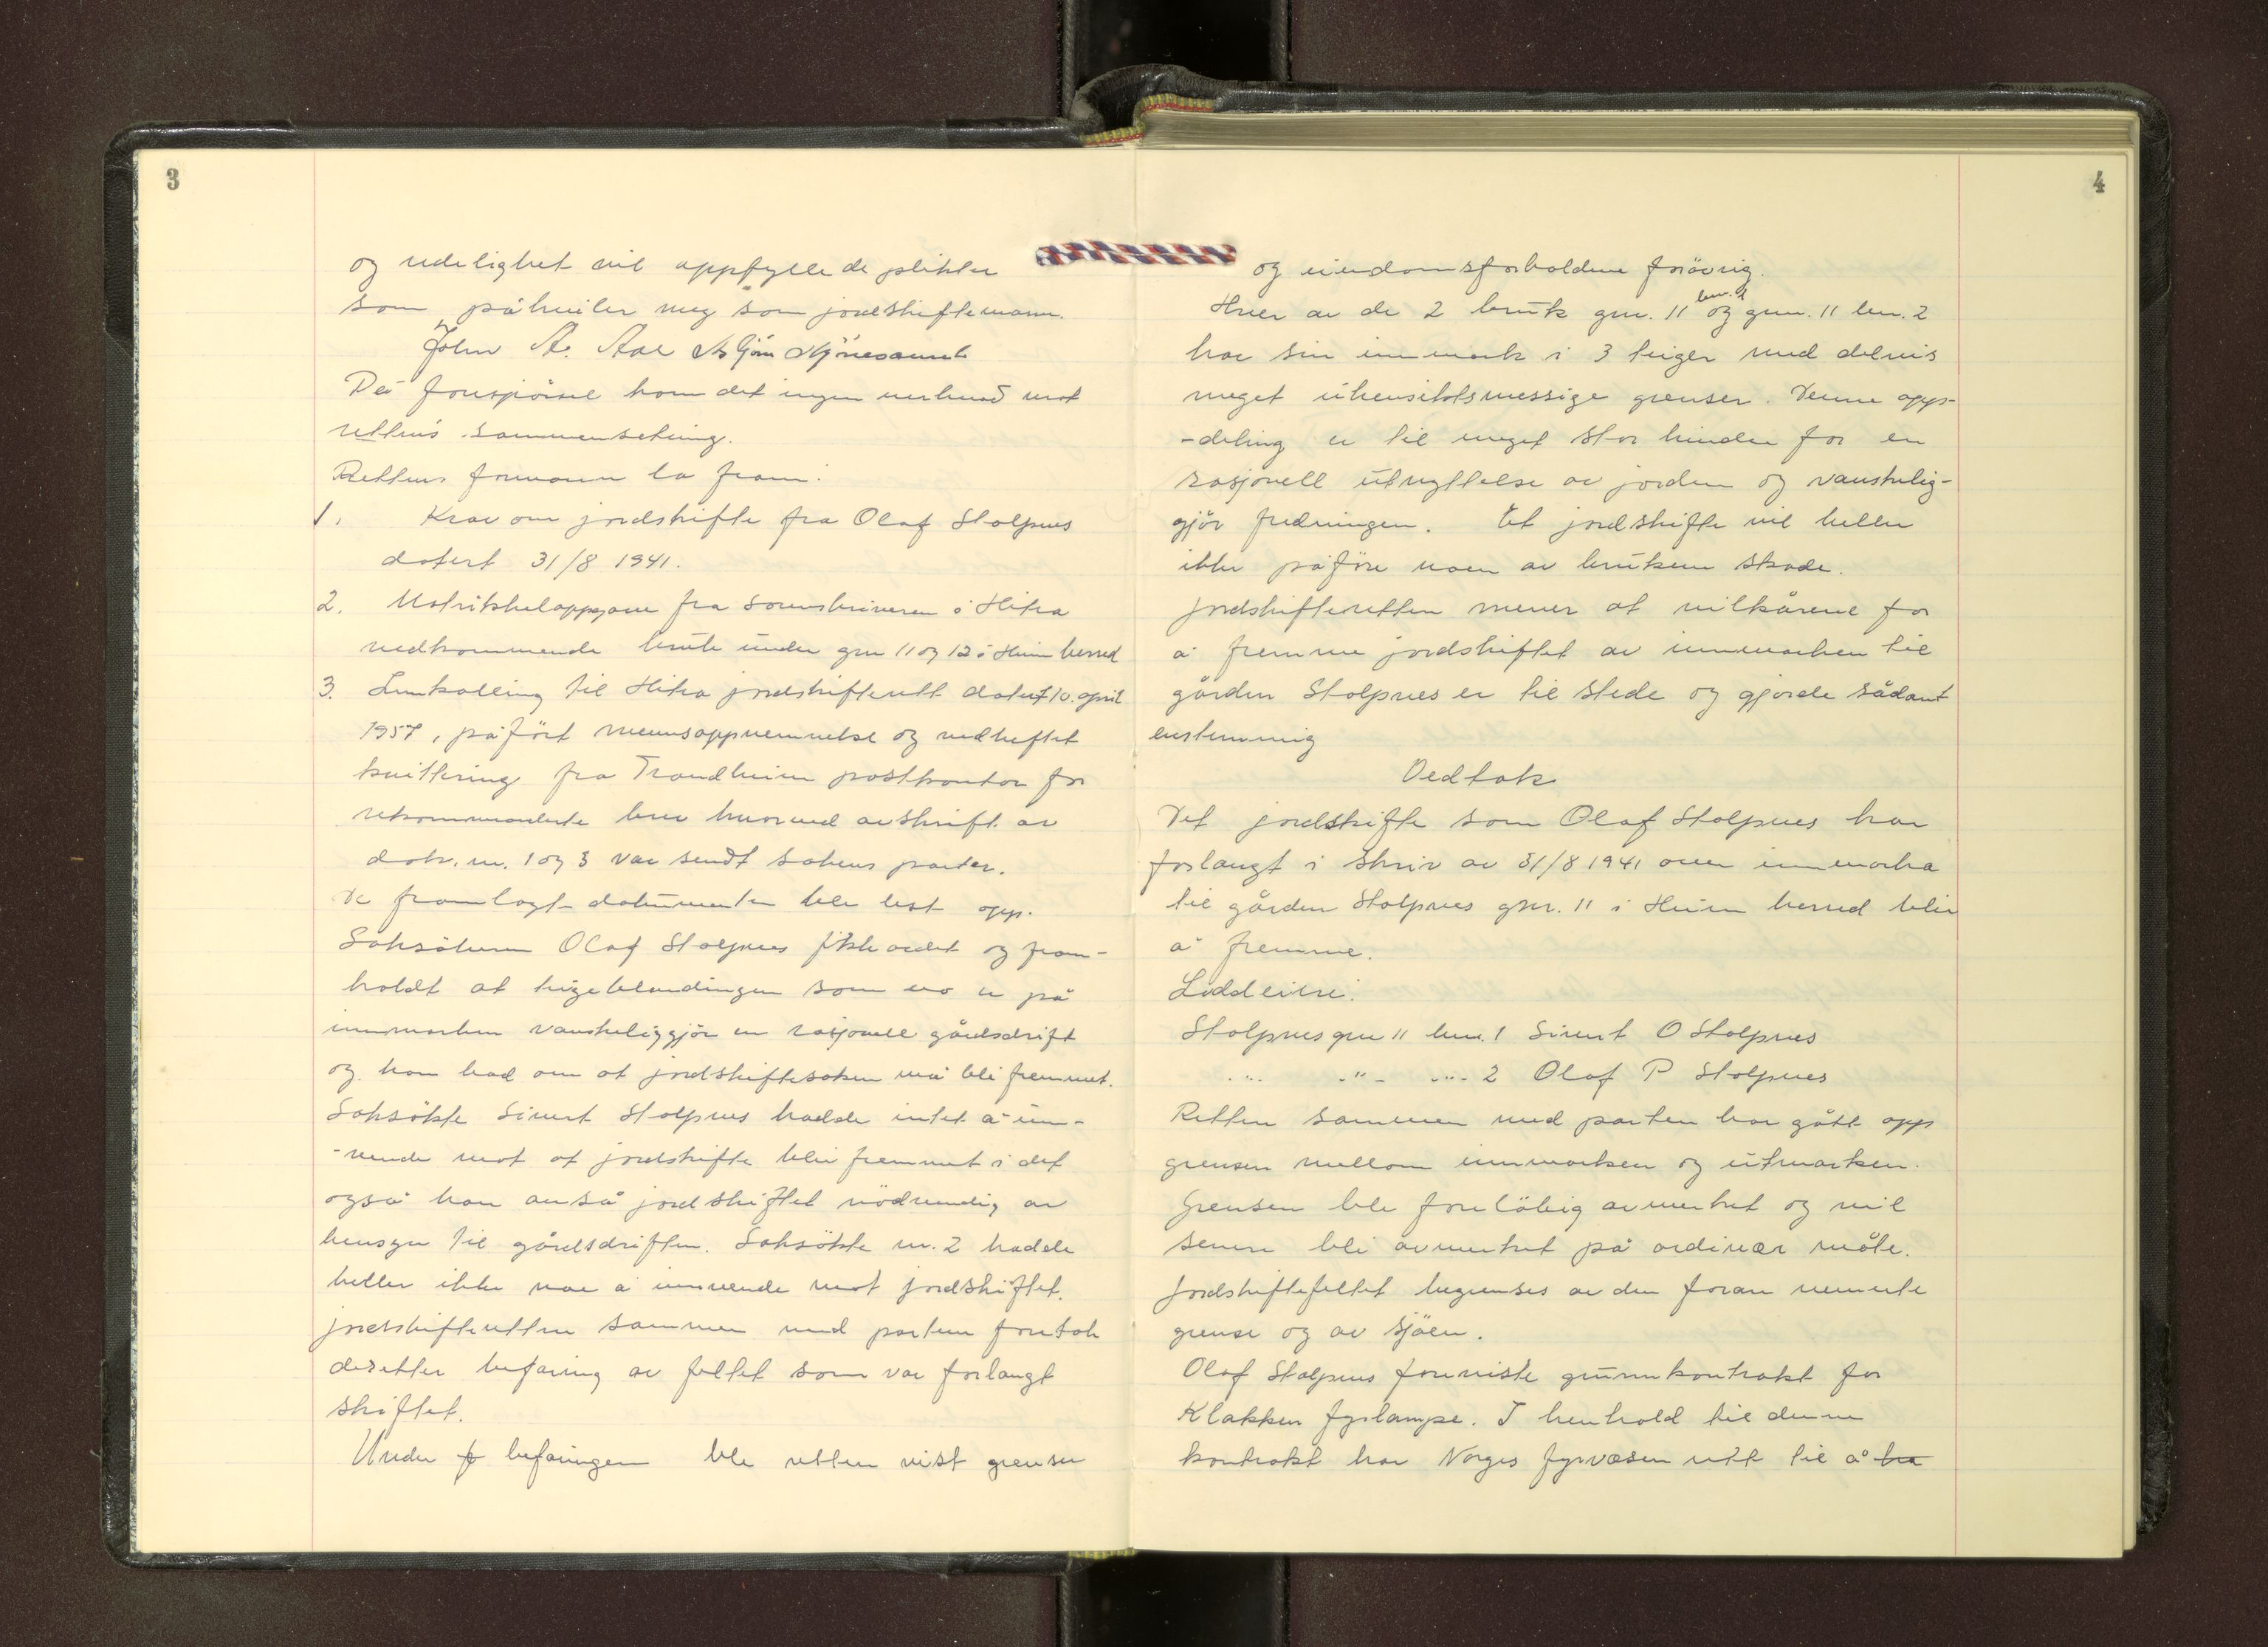 3
og redelighet vil oppfylle de plikter
som påhviler meg som jordskiftemann.
John A. Aae Asbjörn Stjörnesamt
På forespörsel kom det ingen merknad mot
rettens sammensetning.
Rettens formann la fram:
1. Krav om jordskifte fra Olaf Stolpnes
datert 31/8 1941.
2. Matrikkeloppgave fra sorenskriveren i Hitra
vedkommende bruk under gnr 11 og 12 i Heim herred
3. Innkalling til Hitra jordskifterett datert 10. april
1957, påfört mannsoppnemnelse og vedheftet
kvittering fra Trondheim postkontor for
rekommanderte brev hvorved avskrift av
dok. nr. 1 og 3 var sendt sakens parter.
De framlagte dokumenter ble lest opp.
Saksökeren Olaf Stolpnes fikk ordet og fram-
holdt at teigeblandingen som nå er på
innmarken vanskeliggjör en rasjonell gårdsdrift
og han bad om at jordskiftesaken må bli fremmet.
Saksökte Sivert Stolpnes hadde intet å inn-
-vende mot at jordskifte blir fremmet i det
også han anså jordskiftet nödvendig av
hensyn til gårdsdriften. Saksökte nr. 2 hadde
heller ikke noe å innvende mot jordskiftet.
jordskifteretten sammen med partene foretok
deretter befaring av feltet som var forlangt
skiftet.
Under f befaringen ble retten vist grenser
4
og eiendomsforholdene forövrig.
Hver av de 2 bruk gnr. 11 bnr. 1 og gnr. 11 bnr. 2
har sin innmark i 3 teiger med delvis
meget uhensiktsmessige grenser. Denne opp-
-deling er til meget stor hinder for en
rasjonell utnyttelse av jorden og vanskelig-
gjör fredningen. Et jordskifte vil heller
ikke påföre noen av brukene skade.
Jordskifteretten mener at vilkårene for
å fremme jordskiftet av innmarken til
gården Stolpnes er til stede og gjorde sådant
enstemmig
Vedtak
Det jordskifte som Olaf Stolpnes har
forlangt i skriv av 31/8 1941 over innmarka
til gården Stolpnes gnr. 11 i Heim herred blir
å fremme.
Loddeiere:
Stolpnes gnr 11 bnr. 1 Sivert O Stolpnes
-"- -"- -"- 2 Olaf P Stolpnes
Retten sammen med parten har gått opp
grensen mellom innmarken og utmarken.
Grensen ble foreløbig avmerket og vil
senere bli avmerket på ordinær måte.
Jordskiftefeltet begrenses av den foran nevnte
grense og av sjöen.
Olaf Stolpnes foreviste grunnkontrakt for
Klakken fyrlampe. I henhold til denne
kontrakt har Norges fyrvæsen rett til å ha